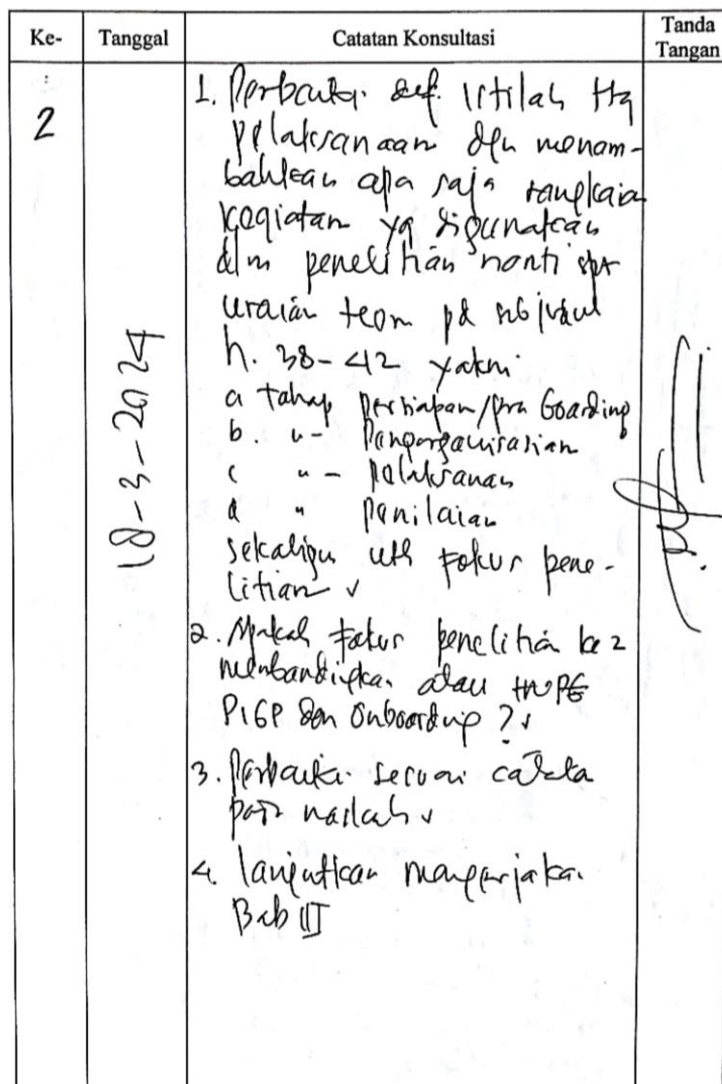 Ke-
Tanggal
Catatan Konsultasi
Tanda
Tangan
2
18-3-2024
1. Perbaiki def. istilah ttg
pelaksanaan dgn menam-
bahkan apa saja rangkaia
kegiatan yg digunakan
dlm penelitian nanti spt
uraian teori pd sub judul
h. 38-42 yakni
a tahap persiapan/pra boarding
b. " - Pengorganisasian
c " - pelaksanaan
d " penilaian
sekaligus utk fokus pene-
litian √
2. Apakah fokus penelitian ke 2
membandingkan atau
PIGP dan Onboarding ? √
3. Perbaiki sesuai catata
pada naskah √
4. lanjutkan mengerjakan
Bab III